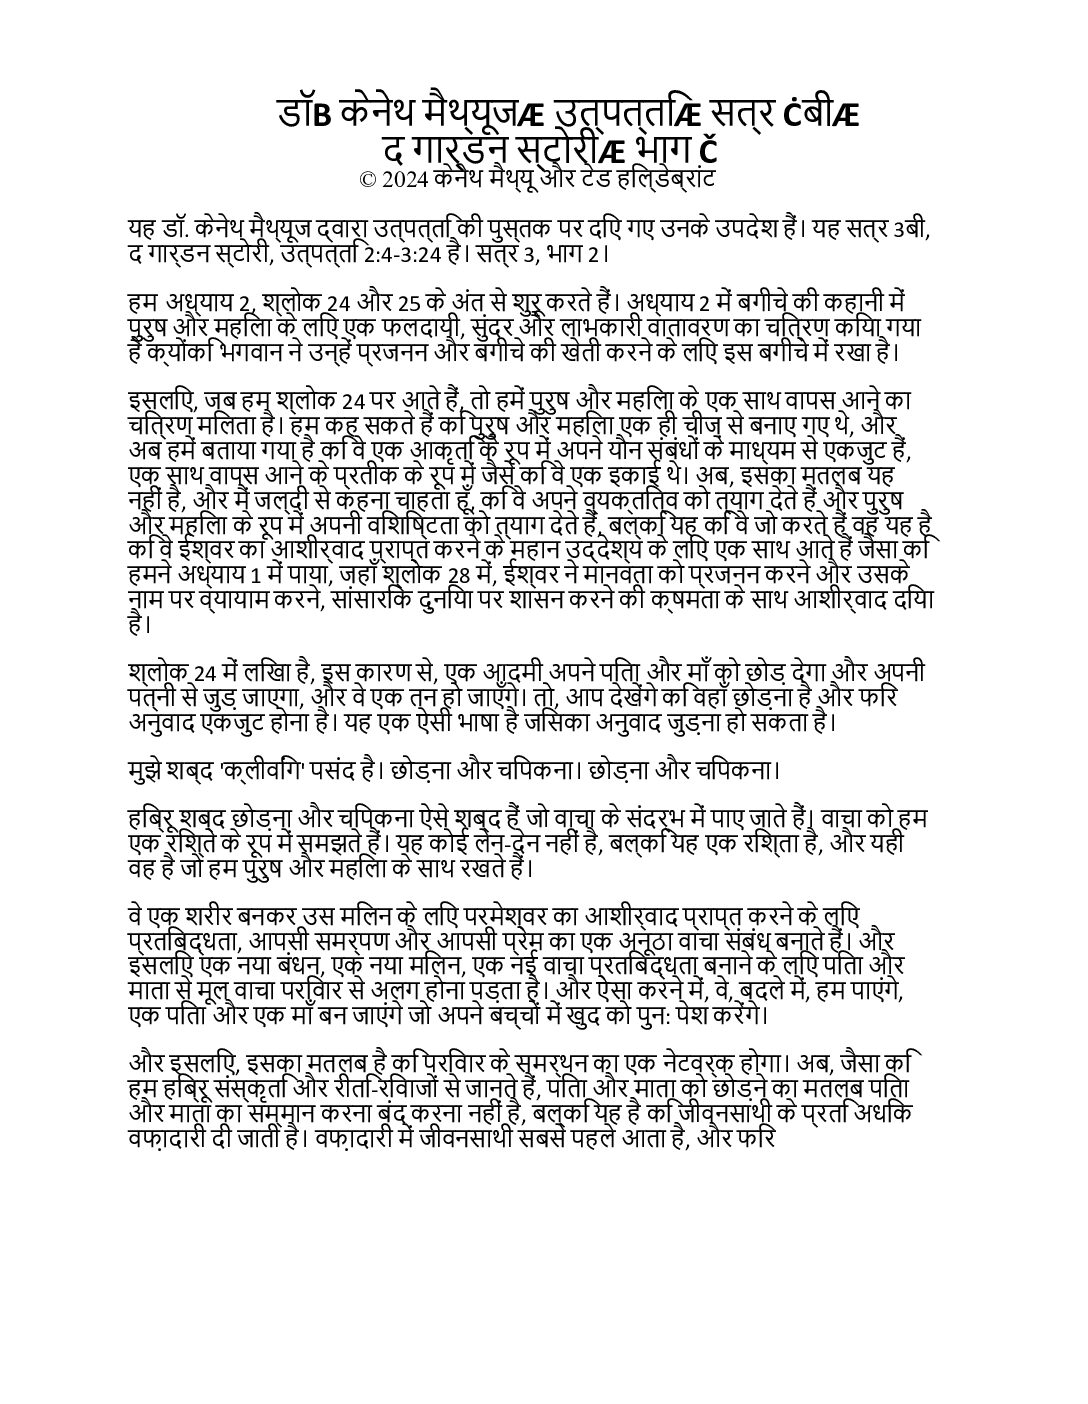 डॉB केनेथ मैथ्यूजÆ उत्पत्तिÆ सत्र ĊबीÆ
द गार्डन स्टोरीÆ भाग Č
© 2024 केनेथ मैथ्यू और टेड हिल्डेब्रांट
यह डॉ. केनेथ मैथ्यूज द्वारा उत्पत्ति की पुस्तक पर दिए गए उनके उपदेश हैं। यह सत्र 3बी,
द गार्डन स्टोरी, उत्पत्ति 2:4-3:24 है। सत्र 3, भाग 2।
हम अध्याय 2, श्लोक 24 और 25 के अंत से शुरू करते हैं। अध्याय 2 में बगीचे की कहानी में
पुरुष और महिला के लिए एक फलदायी, सुंदर और लाभकारी वातावरण का चित्रण किया गया
है क्योंकि भगवान ने उन्हें प्रजनन और बगीचे की खेती करने के लिए इस बगीचे में रखा है।
इसलिए, जब हम श्लोक 24 पर आते हैं, तो हमें पुरुष और महिला के एक साथ वापस आने का
चित्रण मिलता है। हम कह सकते हैं कि पुरुष और महिला एक ही चीज़ से बनाए गए थे, और
अब हमें बताया गया है कि वे एक आकृति के रूप में अपने यौन संबंधों के माध्यम से एकजुट हैं,
एक साथ वापस आने के प्रतीक के रूप में जैसे कि वे एक इकाई थे। अब, इसका मतलब यह
नहीं है, और मैं जल्दी से कहना चाहता हूँ, कि वे अपने व्यक्तित्व को त्याग देते हैं और पुरुष
और महिला के रूप में अपनी विशिष्टता को त्याग देते हैं, बल्कि यह कि वे जो करते हैं वह यह है
कि वे ईश्वर का आशीर्वाद प्राप्त करने के महान उद्देश्य के लिए एक साथ आते हैं जैसा कि
हमने अध्याय 1 में पाया, जहाँ श्लोक 28 में, ईश्वर ने मानवता को प्रजनन करने और उसके
नाम पर व्यायाम करने, सांसारिक दुनिया पर शासन करने की क्षमता के साथ आशीर्वाद दिया
है।
श्लोक 24 में लिखा है, इस कारण से, एक आदमी अपने पिता और माँ को छोड़ देगा और अपनी
पत्नी से जुड़ जाएगा, और वे एक तन हो जाएँगे। तो, आप देखेंगे कि वहाँ छोड़ना है और फिर
अनुवाद एकजुट होना है। यह एक ऐसी भाषा है जिसका अनुवाद जुड़ना हो सकता है।
मुझे शब्द 'क्लीविंग' पसंद है। छोड़ना और चिपकना। छोड़ना और चिपकना।
हिब्रू शब्द छोड़ना और चिपकना ऐसे शब्द हैं जो वाचा के संदर्भ में पाए जाते हैं। वाचा को हम
एक रिश्ते के रूप में समझते हैं। यह कोई लेन-देन नहीं है, बल्कि यह एक रिश्ता है, और यही
वह है जो हम पुरुष और महिला के साथ रखते हैं।
वे एक शरीर बनकर उस मिलन के लिए परमेश्वर का आशीर्वाद प्राप्त करने के लिए
प्रतिबद्धता, आपसी समर्पण और आपसी प्रेम का एक अनूठा वाचा संबंध बनाते हैं। और
इसलिए एक नया बंधन, एक नया मिलन, एक नई वाचा प्रतिबद्धता बनाने के लिए पिता और
माता से मूल वाचा परिवार से अलग होना पड़ता है। और ऐसा करने में, वे, बदले में, हम पाएंगे,
एक पिता और एक माँ बन जाएंगे जो अपने बच्चों में खुद को पुन: पेश करेंगे।
और इसलिए, इसका मतलब है कि परिवार के समर्थन का एक नेटवर्क होगा। अब, जैसा कि
हम हिब्रू संस्कृति और रीति-रिवाजों से जानते हैं, पिता और माता को छोड़ने का मतलब पिता
और माता का सम्मान करना बंद करना नहीं है, बल्कि यह है कि जीवनसाथी के प्रति अधिक
वफ़ादारी दी जाती है। वफ़ादारी में जीवनसाथी सबसे पहले आता है, और फिर